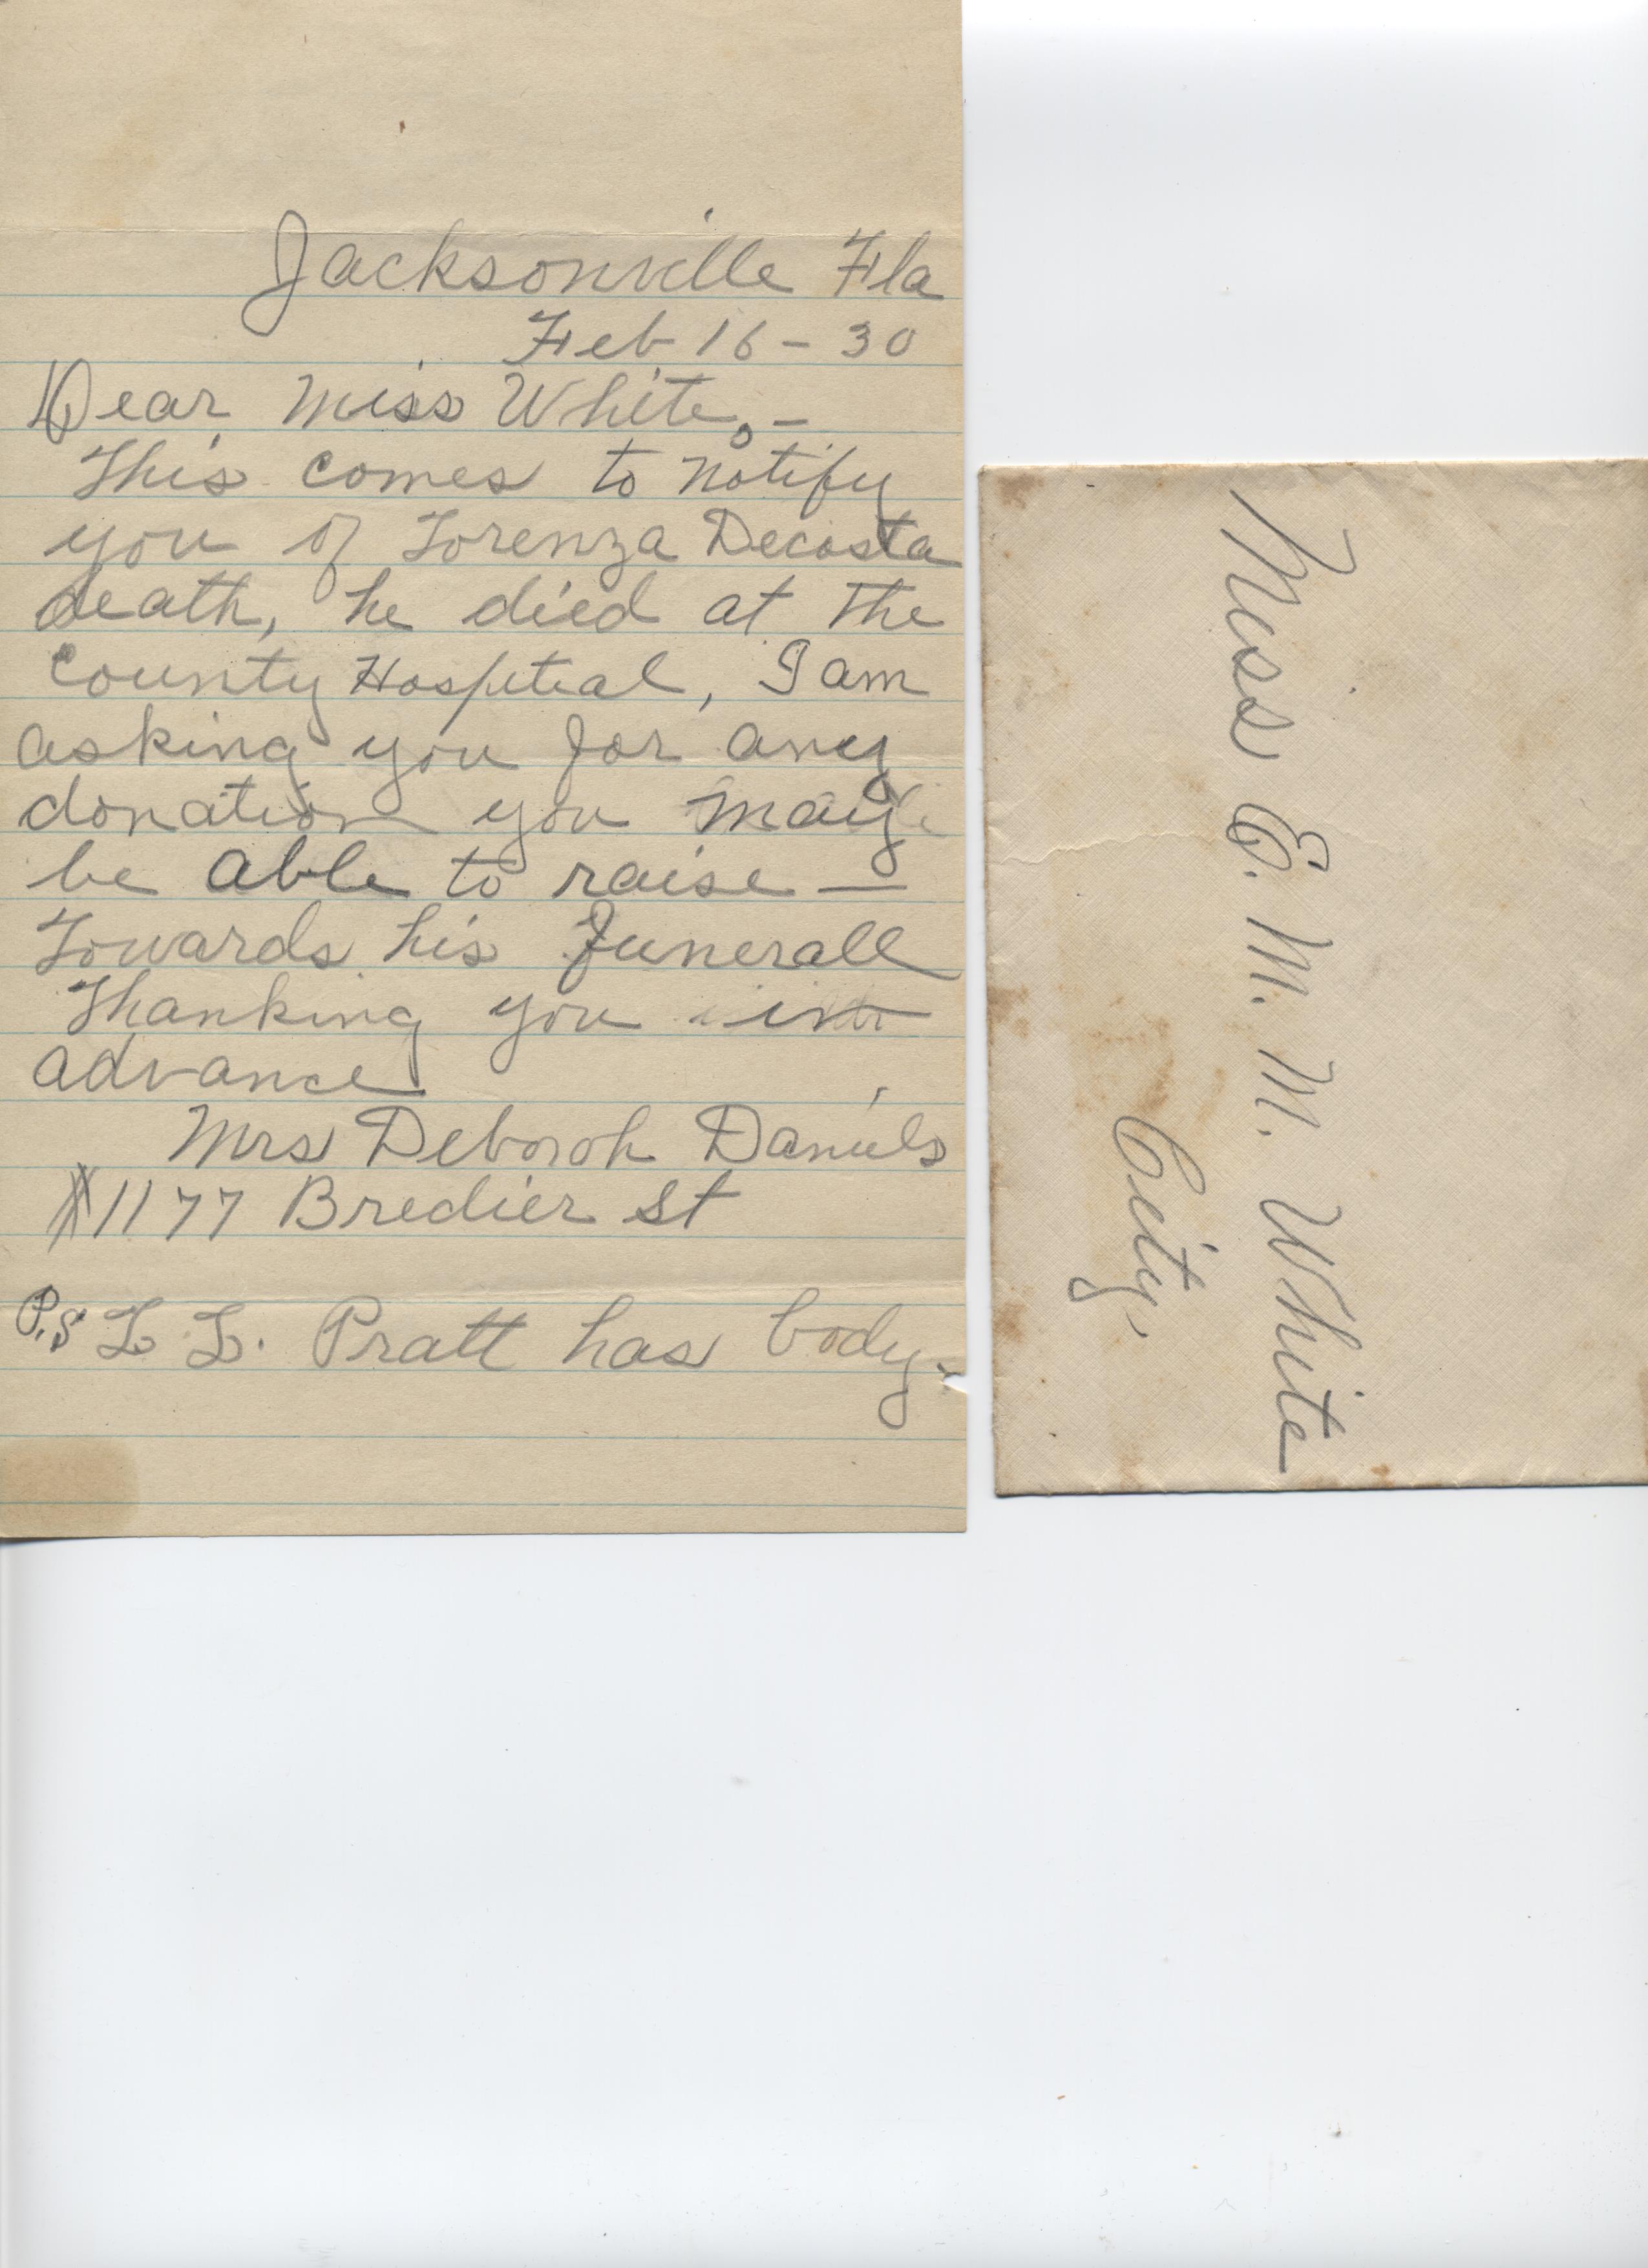 Jacksonville Fla
Feb 16 - 30
Dear Miss White, -
This comes to notify
you of Lorenza Decosta
death, he died at the
County Hospital, I am
asking you for any
donation you may
be able to raise —
Towards his funerall
Thanking you in
advance
Mrs Deborah Daniels
#1177 Bredier St
P.S L L. Pratt has body.
Miss E. M. M. White
City,